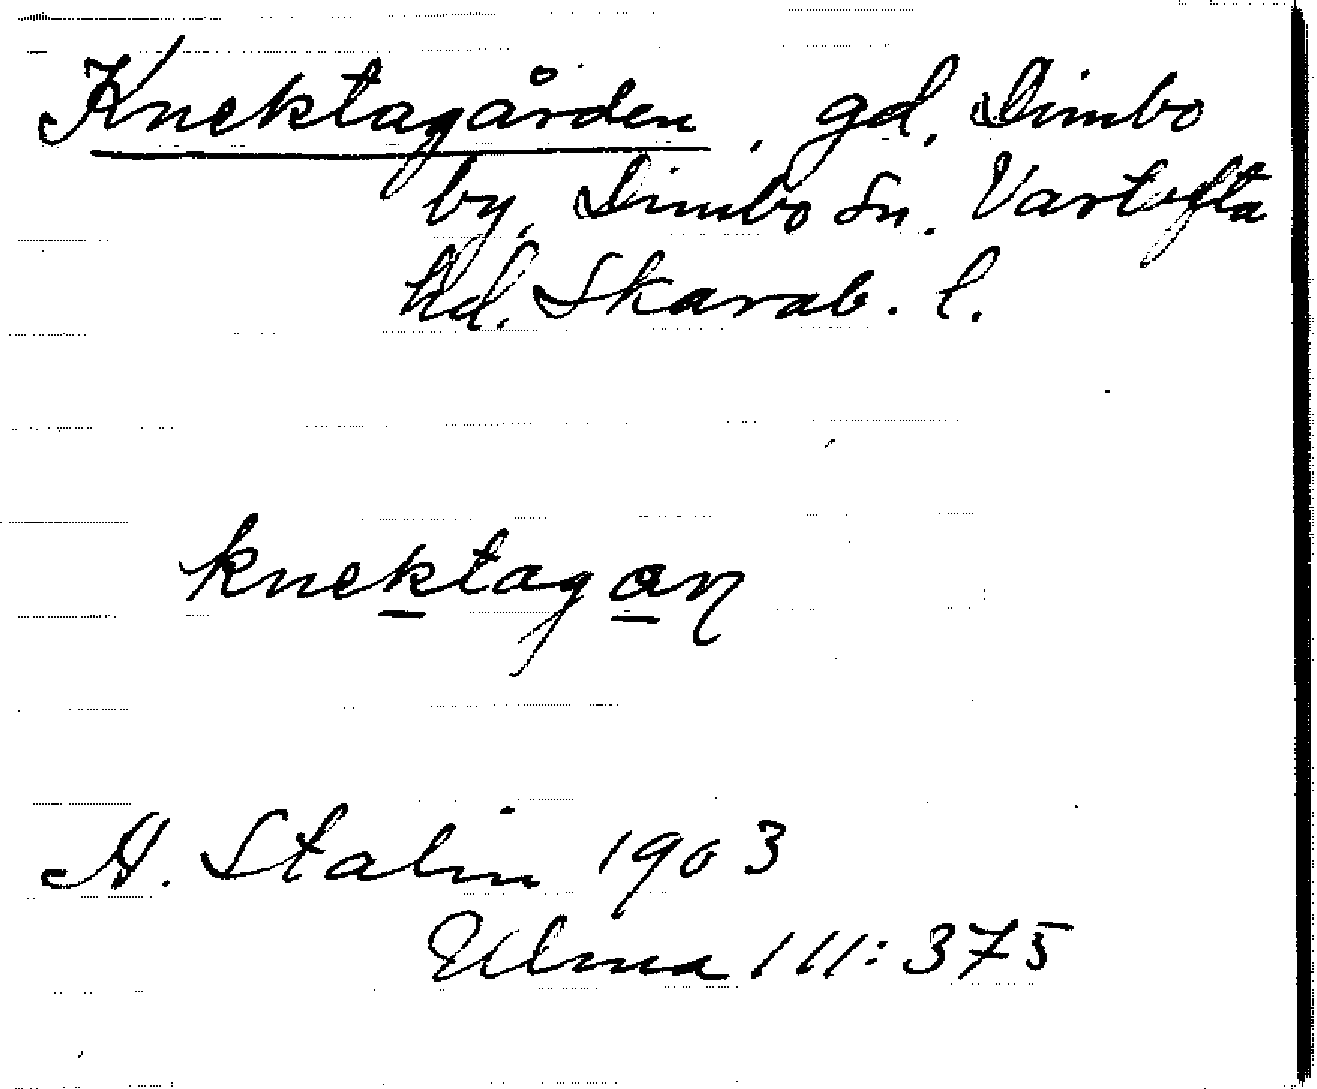 Knektagården, gd, Dimbo
by, Dimbo sn. Vartofta
hd. Skarab. l.
knektagan
A. Stalin 1903
Ulma 111:375